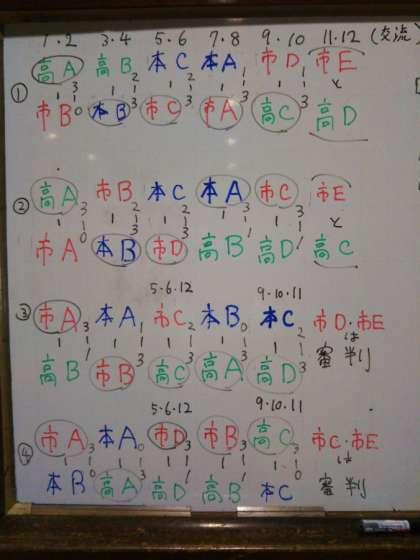 1・2 3・4 5・6 7・8 9・10 11・12 (交流)
① 高A 3 高B 2 本C 2 本A 1 市D 1 市E
| | | | | と
市B 0 本B 3 市C 3 市A 3 高C 3 高D
② 高A 3 市B 2 本C 2 本A 3 市C 3 市E
| | | | | と
市A 0 本B 3 市D 3 高B 1 高D 1 高C
5・6・12 9・10・11
③ 市A 3 本A 1 市C 2 本B 0 本C 2 市D・市E
| | | | | は
高B 1 市B 3 高C 3 高A 3 高D 3 審判
5・6・12 9・10・11
④ 市A 3 本A 0 市D 3 市B 3 高C 3 市C・市E
| | | | | は
本B 0 高A 3 高D 1 高B 1 本C 0 審判